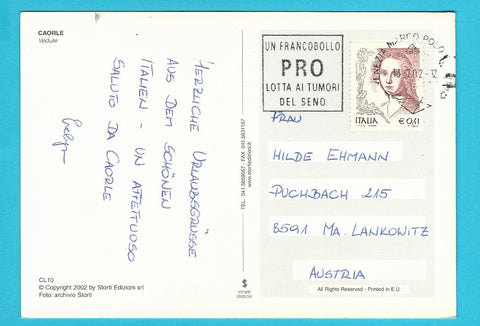 CAORLE
Vedute
HERZLICHE URLAUBSGRÜSSE
AUS DEM SCHÖNEN
ITALIEN - UN AFFETTUOSO
SALUTO DA CAORLE
CL10
© Copyright 2002 by Storti Edizioni srl
Foto: archivio Storti
TEL. 041.5659057 - FAX 041.5631157
www.stortiedizioni.it
UN FRANCOBOLLO
PRO
LOTTA AI TUMORI
DEL SENO
VENEZIA MARCO POLO
ITALIA €0,41
FRAU
HILDE EHMANN
PUCHBACH 215
8591 MA. LANKOWITZ
AUSTRIA
All Rights Reserved - Printed in E.U.